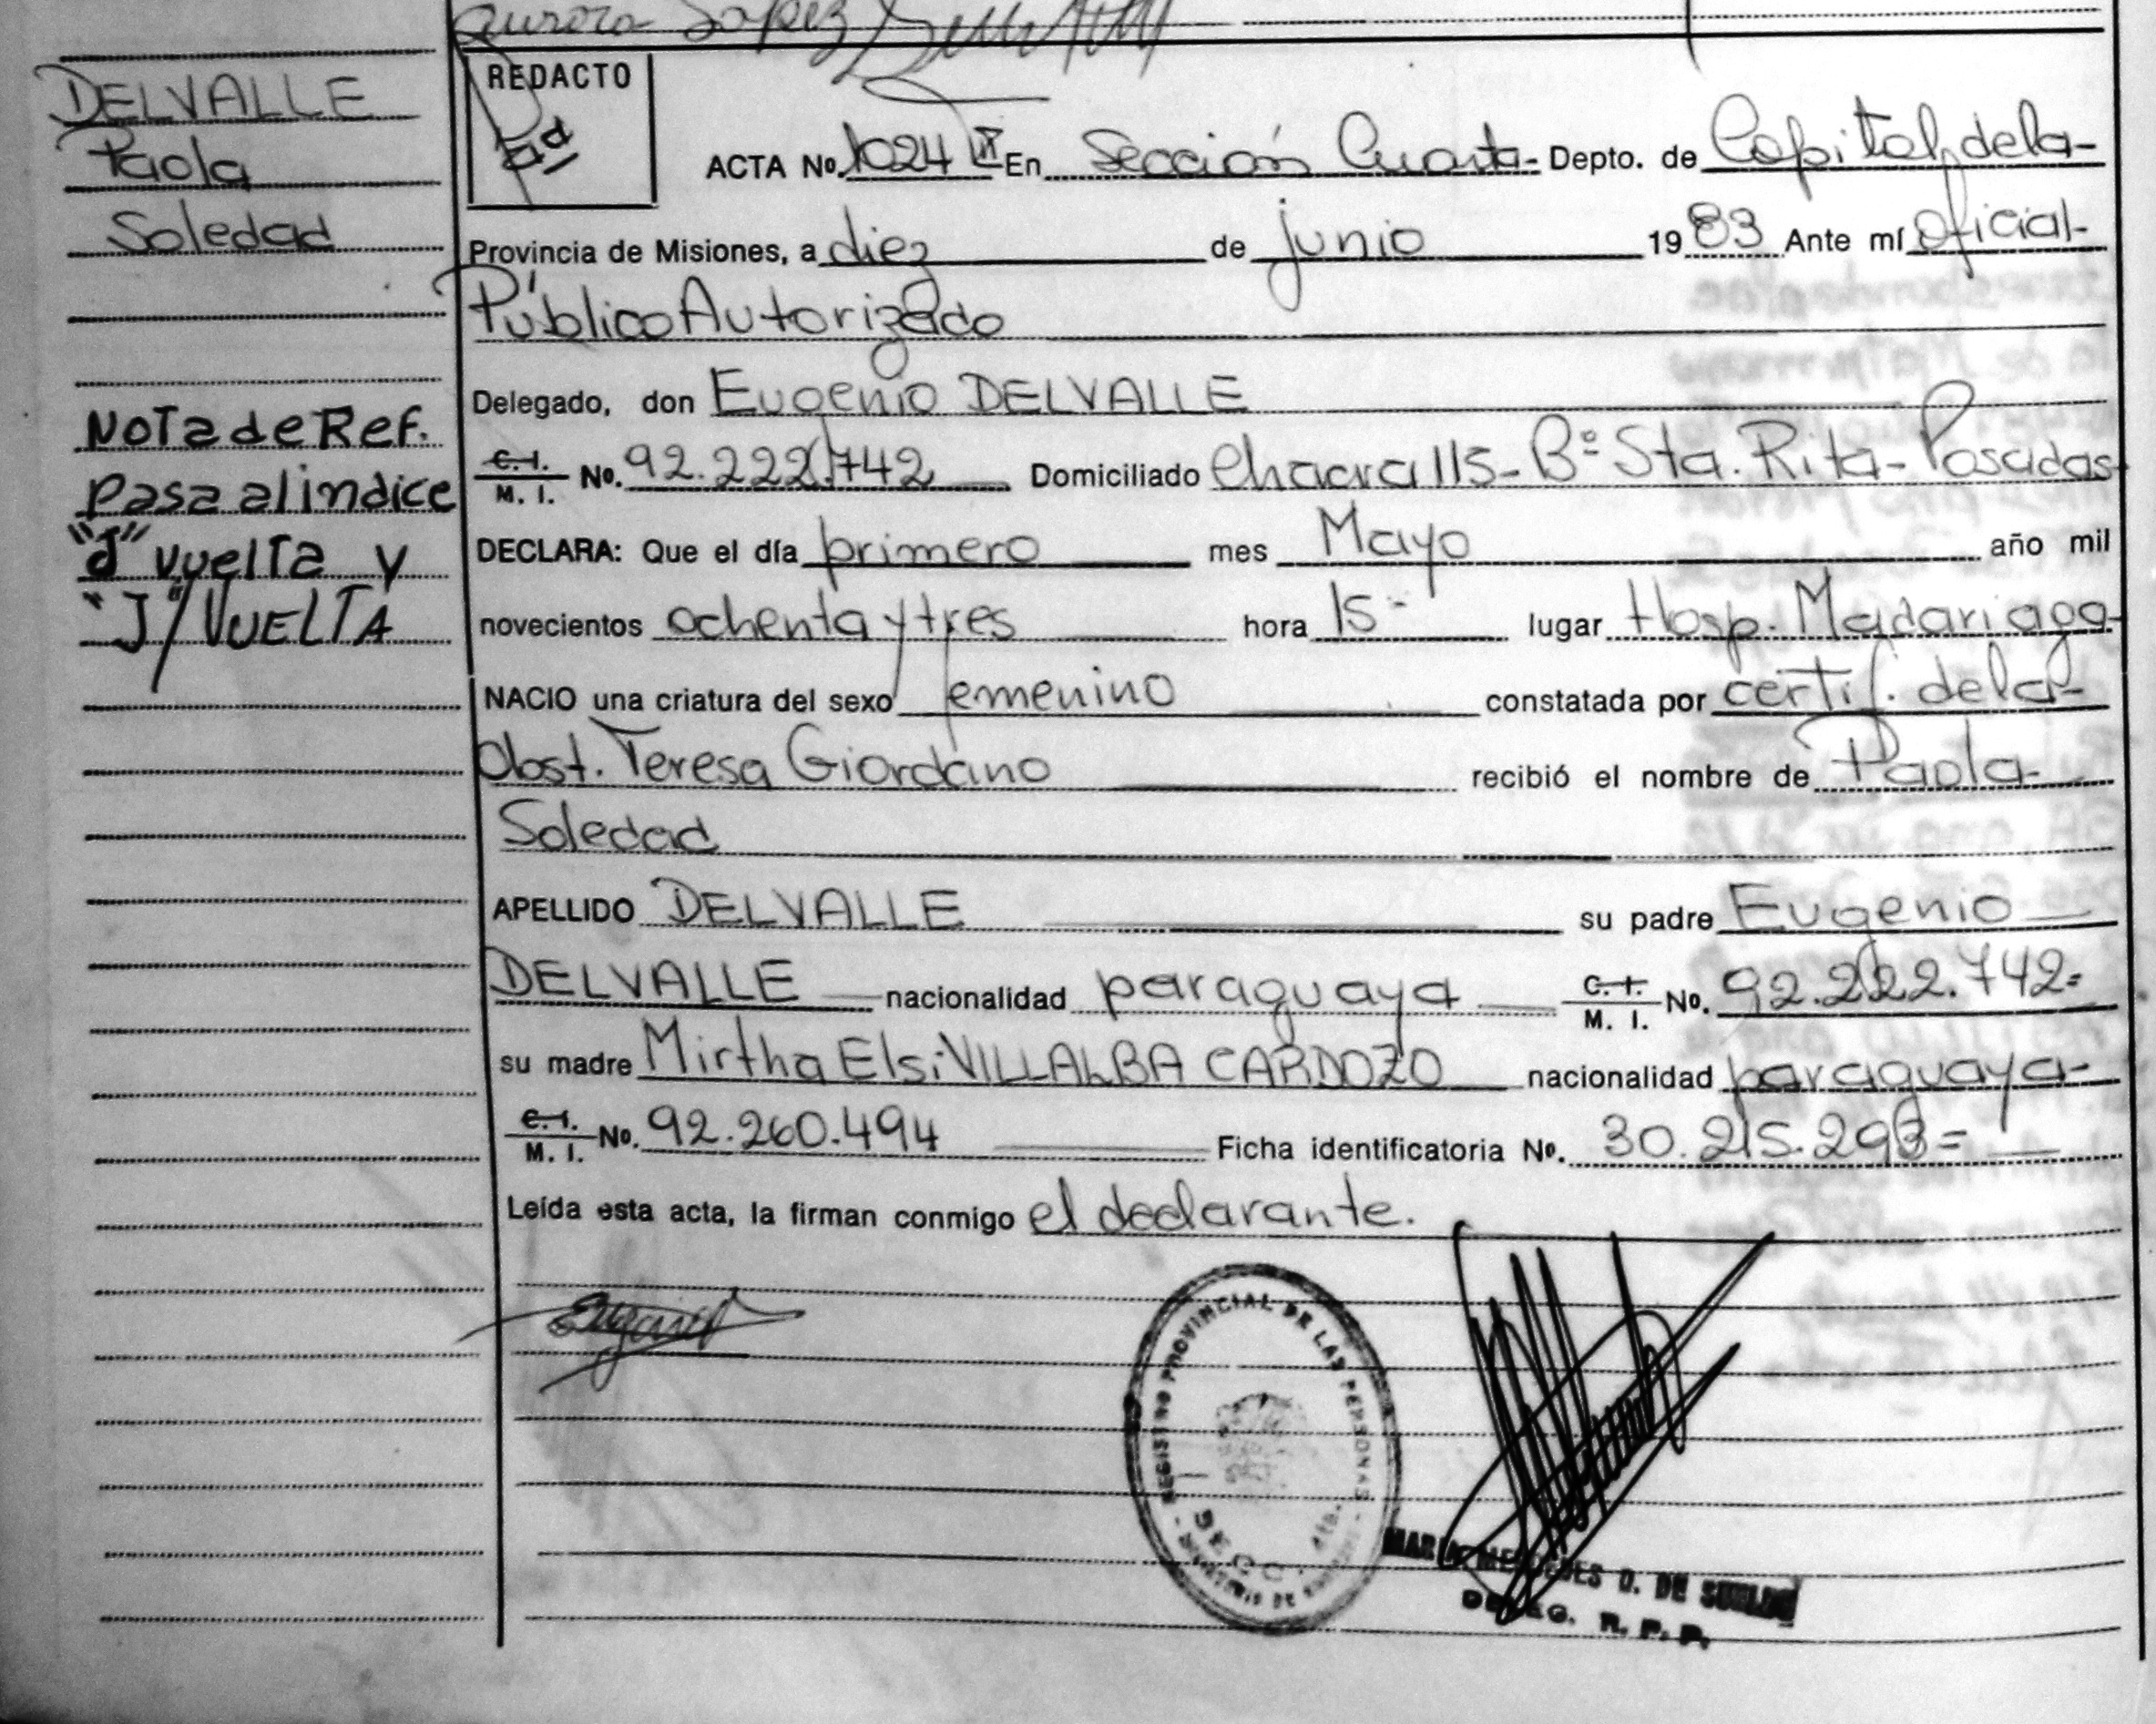 Aurora Lopez
DELVALLE
Paola
Soledad
Nota de Ref.
Pasa al indice
"J" vuelta y
"J"/VUELTA
REDACTO
ACTA No. 1024 En Sección Cuarta- Depto. de Capital, de la-
Provincia de Misiones, a diez de junio 1983 Ante mí oficial-
Público Autorizado
Delegado, don Eugenio DELVALLE
C. I. / M. I. No. 92.222.742 Domiciliado Chacra 115- Bº Sta. Rita- Posadas-
DECLARA: Que el día primero mes Mayo año mil
novecientos ochenta y tres hora 15- lugar Hosp. Madariaga-
NACIO una criatura del sexo femenino constatada por certif. de la-
Obst. Teresa Giordano recibió el nombre de Paola-
Soledad
APELLIDO DELVALLE su padre Eugenio
DELVALLE nacionalidad paraguaya C. I. / M. I. No. 92.222.742=
su madre Mirtha Elsi VILLALBA CARDOZO nacionalidad paraguaya-
C. I. / M. I. No. 92.260.494 Ficha identificatoria No. 30.215.293=
Leída esta acta, la firman conmigo el declarante.
REGISTRO PROVINCIAL DE LAS PERSONAS
SECC. 4ta.
MARIA MERCEDES D. DE
DELEG. R. P. P.